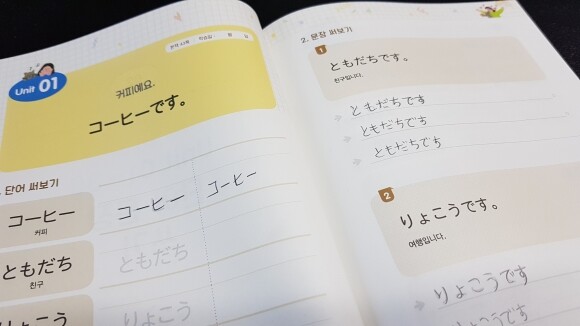 Unit 01
커피예요.
コーヒーです。
단어 써보기
コーヒー
커피
コーヒー
コーヒー
ともだち
친구
ともだち
りょこう
りょこう
2. 문장 써보기
1
ともだちです。
친구입니다.
ともだちです
ともだちです
ともだちです
2
りょこうです。
여행입니다.
りょこうです
りょこうです